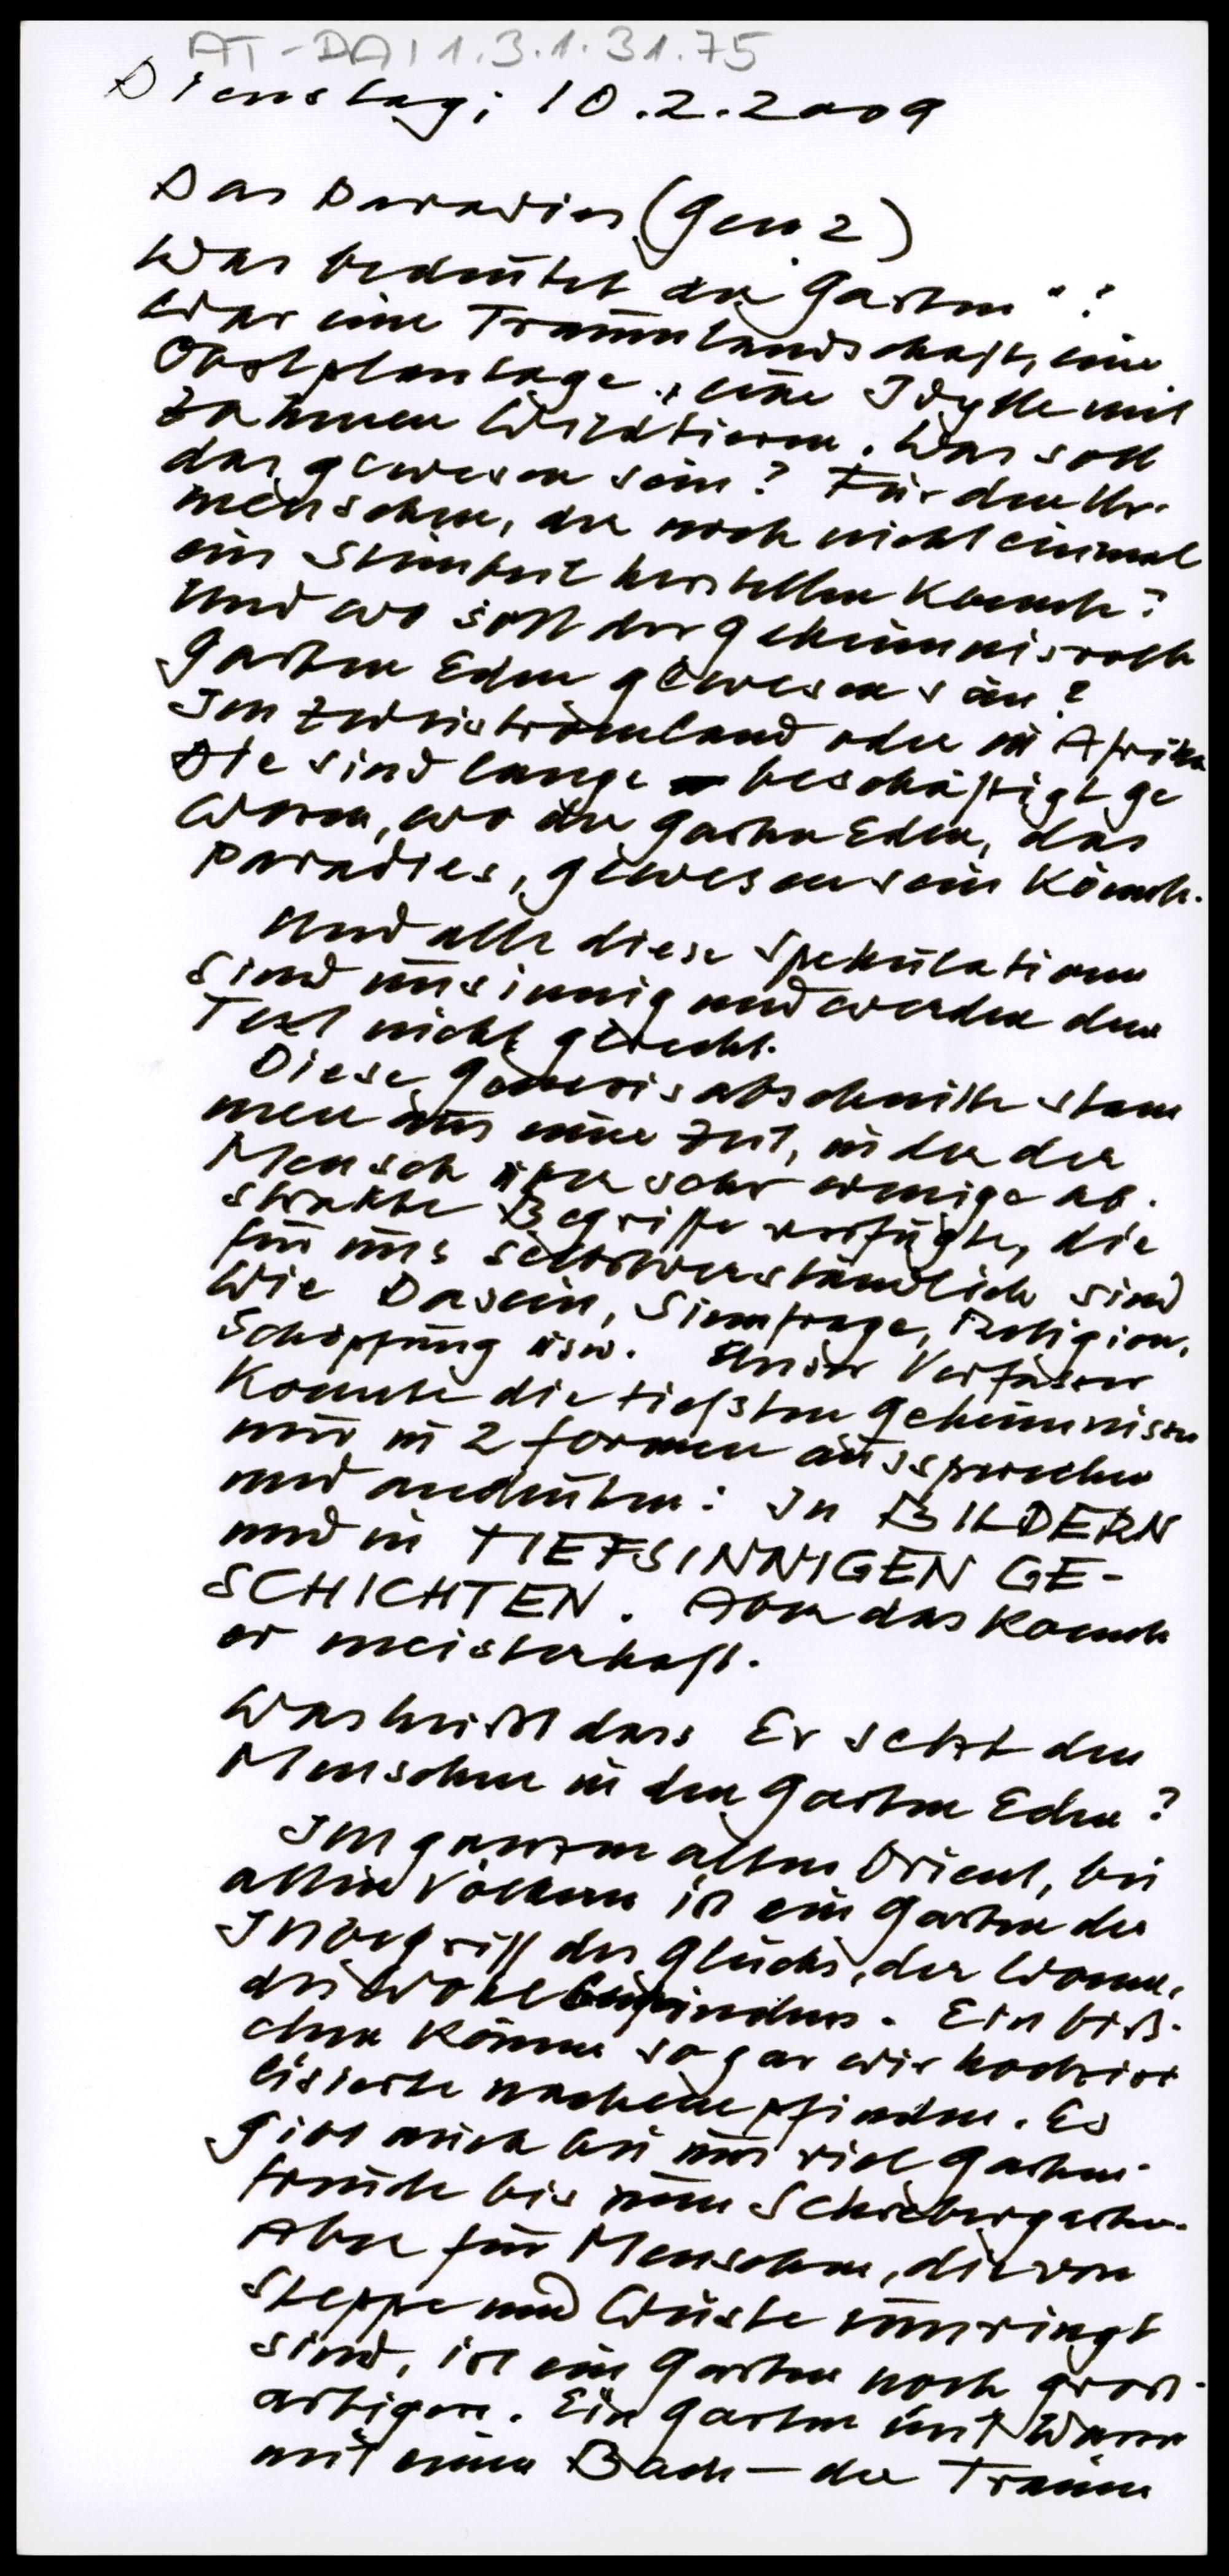 AT-DAI 1.3.1.31.75
Dienstag, 10.2.2009
Das Paradies (Gen 2)
Was bedeutet der "Garten"?
War eine Traumlandschaft, eine
Obstplantage, eine Idylle mit
zahmen Wildtieren. Was soll
das gewesen sein? Für den Ur-
menschen, der noch nicht einmal
ein Steinbeil herstellen konnte?
Und wo soll der geheimnisvolle
Garten Eden gewesen sein?
Im Zweistromland oder in Afrika
Die sind lange beschäftigt ge
wesen, wo der Garten Eden, das
Paradies, gewesen sein könnte.
Und alle diese Spekulationen
sind unsinnig und werden dem
Text nicht gerecht.
Diese Genesisabschnitte stam
men aus einer Zeit, in der der
Mensch über sehr wenige ab-
strakte Begriffe verfügte, die
für uns selbstverständlich sind
wie Dasein, Sinnfrage, Religion,
Schöpfung usw. Unser Verfasser
konnte die tiefsten Geheimnisse
nur in 2 Formen aussprechen
und andeuten: In BILDERN
und in TIEFSINNIGEN GE-
SCHICHTEN. Aber das konnte
er meisterhaft.
Was heißt das: Er setzt den
Menschen in den Garten Eden?
Im ganzen alten Orient, bei
allen Völkern ist ein Garten der
Inbegriff des Glücks, der Wonne,
des Wohlbefindens. Ein biß-
chen können sogar wir hochzivi
lisierte nachempfinden. Es
gibt auch bei uns viel Garten-
freude bis zum Schrebergarten.
Aber für Menschen, die von
Steppe und Wüste umringt
sind, ist ein Garten noch groß-
artiger. Ein Garten mit Wasser
mit einem Bach – der Traum